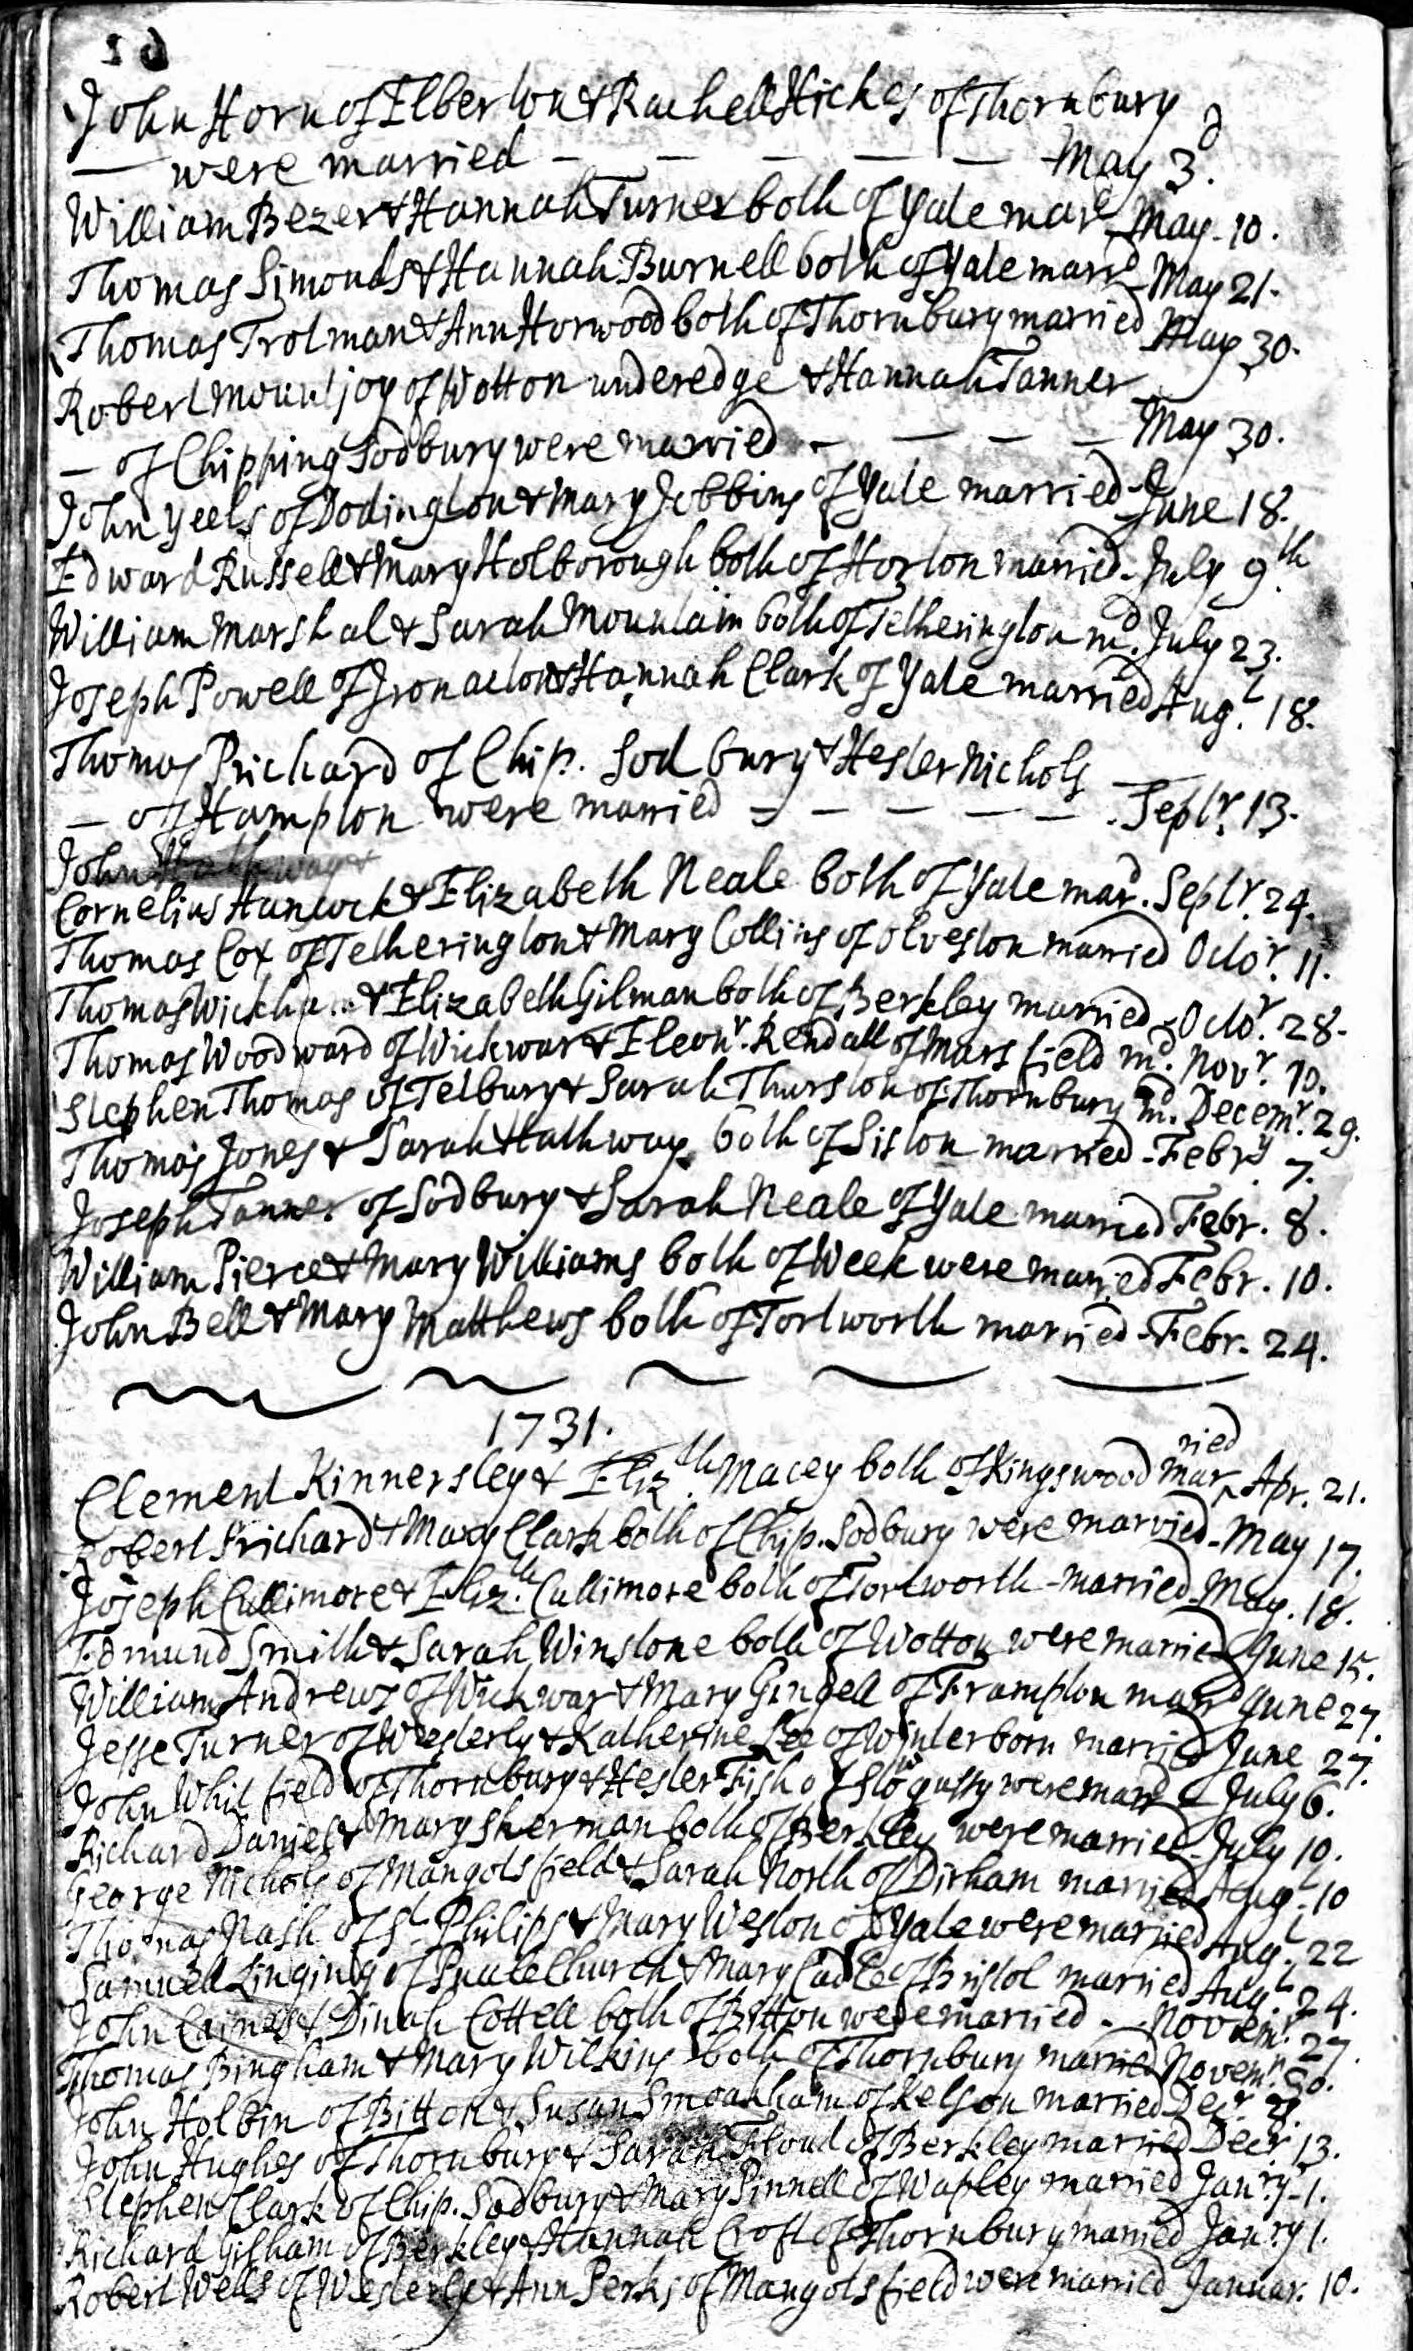 John Horn of Elberton & Rachell Hickes of Thornbury
— were married — — — — — May 3d.
William Bezer & Hannah Turner both of Yate mard May-10.
Thomas Simonds & Hannah Burnell both of Yate marrd May 21.
Thomas Trotman & Ann Horwood both of Thornbury married May 30.
Robert Mountjoy of Wotton underedge & Hannah Tanner
— of Chipping Sodbury were married - — — — May 30.
John Yeels of Dodington & Mary Jobbins of Yate married June 18.
Edward Russell & Mary Holborough both of Horton married July 9th.
William Marshal & Sarah Mountain both of Tetherington md. July 23.
Joseph Powell of Ironacton & Hannah Clark of Yate married Augt. 18.
Thomas Prichard of Chip. Sodbury & Hester Nichols —
— of Hampton were married — — — — — Septr. 13.
John Hathway &
Cornelius Hancock & Elizabeth Neale both of Yate mard. Septr. 24.
Thomas Cox of Tetherington & Mary Collins of Olveston married Octor. 11.
Thomas & Elizabeth Gilman both of Berkley married Octor. 28.
Thomas Woodward of Wickwar & Eleonr. Kendall of Marsfield md. Novr. 10.
Stephen Thomas of Tetbury & Sarah Thurston of Thornbury md. Decemr. 29.
Thomas Jones & Sarah Hathway both of Siston married Febry 7.
Joseph Tanner of Sodbury & Sarah Neale of Yate married Febr. 8.
William Pierce & Mary Williams both of Week were married Febr. 10.
John Bell & Mary Matthews both of Tortworth married Febr. 24.
1731.
Clement Kinnersley & Elizth. Macey both of Kingswood married Apr. 21.
Robert Prichard & Mary Clark both of Chip. Sodbury were married May 17.
Joseph Cullimore & Elizth. Cullimore both of Tortworth married May. 18.
Edmund Smith & Sarah Winstone both of Wotton were married June 15.
William Andrews of Wickwar & Mary Gingell of Frampton marrd June 27.
Jesse Turner of Westerly & Katherine Lee of Winterborn married June 27.
John Whitfield of Thornbury & Hester Fish of were marrd July 6.
Richard Daniel & Mary Sherman both of Berkley were married July 10.
George Nichols of Mangotsfield & Sarah North of Dirham married Augt. 10
Thomas Nash of St. Philips & Mary Weston of Yate were married Augt. 22
Samuell of Church & Mary Cadle of Bristol married Augt. 24.
John Caines & Dinah Cottell both of Bitton were married — Novemr. 27.
Thomas Bingham & Mary Wilkins both of Thornbury married Novemr. 30.
John Holbin of Bitton & Susan of Kelson married Decr.
John Hughes of Thornbury & Sarah Floud of Berkley married Decr. 13.
Stephen Clark of Chip. Sodbury & Mary Pinnell of Wapley married Janry. 1.
Richard Gilham of Berkley & Hannah Croft of Thornbury married Janry 1.
Robert Wells of Westerly & Ann Perks of Mangotsfield were married Januar. 10.